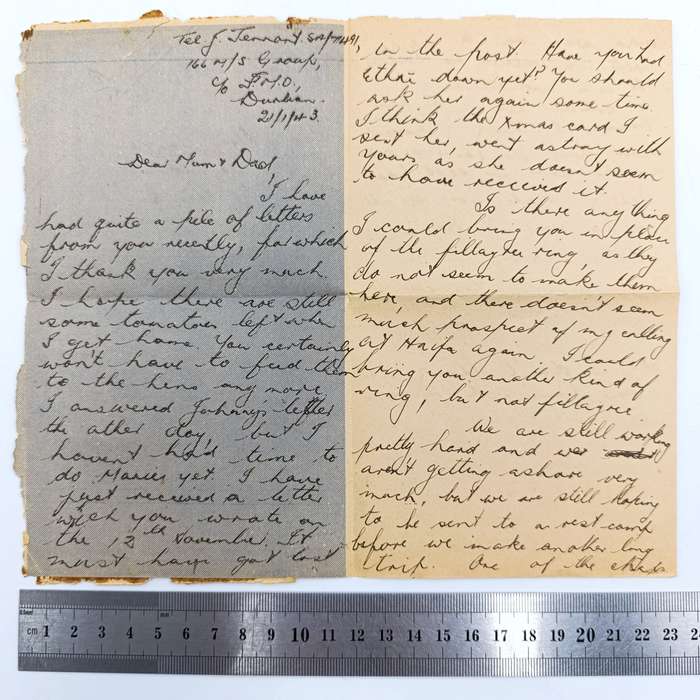 Tel J. Tennant SA/71491,
166 M/S Group,
c/o F.M.O,
Durban.
21/1/43.
Dear Mum & Dad,
I have
had quite a pile of letters
from you recently, for which
I thank you very much.
I hope there are still
some tomatoes left when
I get home. You certainly
won't have to feed them
to the hens any more.
I answered Johnny's letter
the other day, but I
havent had time to
do Maries yet. I have
just received a letter
which you wrote on
the 12th November. It
must have got lost
in the post. Have you had
down yet? You should
ask her again some time.
I think the Xmas card I
sent her, went astray with
yours as she doesn't seem
to have received it.
Is there anything
I could bring you in place
of the fillagree ring, as they
do not seem to make them
here, and there doesn't seem
much prospect of my calling
at Haifa again. I could
bring you another kind of
ring, but not fillagree.
We are still working
pretty hard and we
aren't getting ashore very
much, but we are still hoping
to be sent to a rest camp
before we make another long
trip. One of the chaps
cm 1 2 3 4 5 6 7 8 9 10 11 12 13 14 15 16 17 18 19 20 21 22 23 2